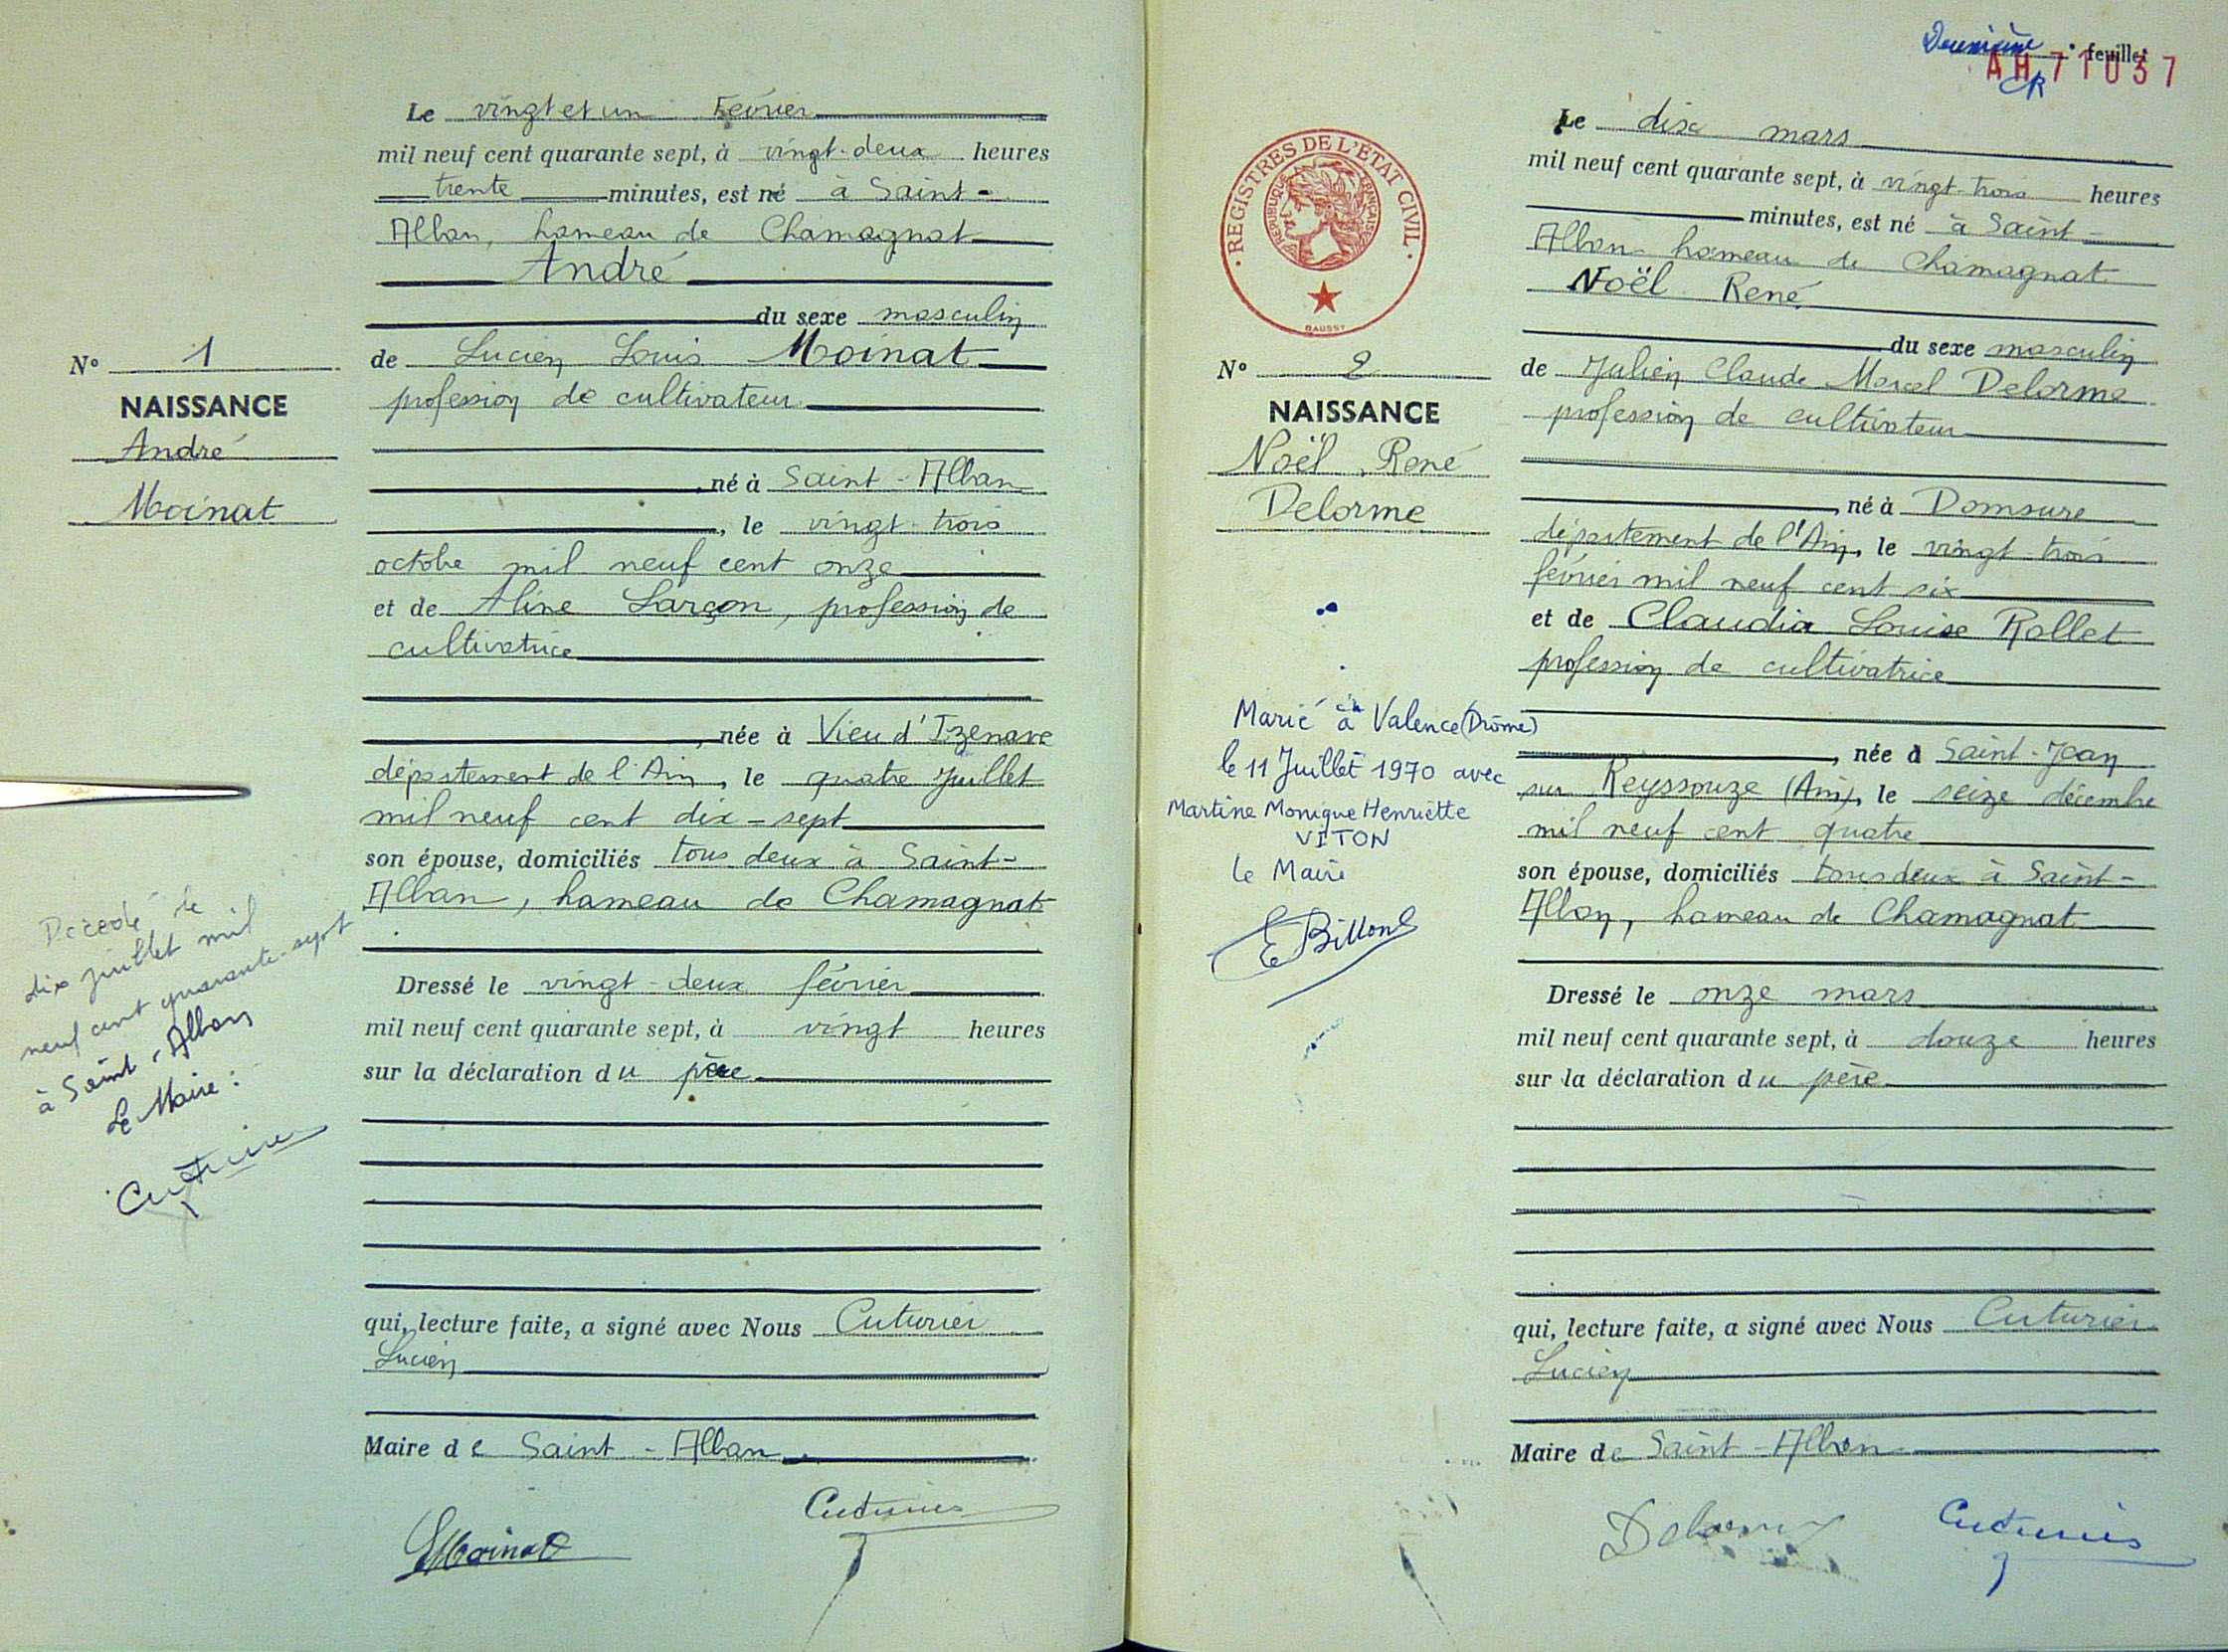 Le vingt et un Février
mil neuf cent quarante sept, à vingt-deux heures
trente minutes, est né à Saint-
Alban, hameau de Chamagnat
André
du sexe masculin
N° 1
de Lucien Louis Moinat
NAISSANCE
profession de cultivateur
André
Moinat
, né à Saint-Alban
, le vingt-trois
octobre mil neuf cent onze
et de Aline Larçon, profession de
cultivatrice
, née à Vieu d'Izenave
département de l'Ain, le quatre Juillet
mil neuf cent dix-sept
son épouse, domiciliés tous deux à Saint-
Alban, hameau de Chamagnat
Décédé le
dix juillet mil
neuf cent quarante-sept
à Saint-Alban
Le Maire :
Cuturier
Dressé le vingt-deux février
mil neuf cent quarante sept, à vingt heures
sur la déclaration du père
qui, lecture faite, a signé avec Nous Cuturier
Lucien
Maire de Saint-Alban
Moinat
Cuturier
Deuxième feuillet
AH71037
Le dix mars
mil neuf cent quarante sept, à vingt-trois heures
minutes, est né à Saint-
Alban hameau de Chamagnat
Noël René
du sexe masculin
REGISTRES DE L'ÉTAT CIVIL
RÉPUBLIQUE FRANÇAISE
N° 2
NAISSANCE
Noël René
Delorme
de Julien Claude Marcel Delorme
profession de cultivateur
, né à Domsure
département de l'Ain, le vingt-trois
février mil neuf cent six
et de Claudia Louise Rollet
profession de cultivatrice
, née à Saint-Jean
sur Reyssouze (Ain), le seize décembre
mil neuf cent quatre
son épouse, domiciliés tous deux à Saint-
Alban, hameau de Chamagnat
Marié à Valence (Drôme)
le 11 Juillet 1970 avec
Martine Monique Henriette
VITON
le Maire
Dressé le onze mars
mil neuf cent quarante sept, à douze heures
sur la déclaration du père
qui, lecture faite, a signé avec Nous Cuturier
Lucien
Maire de Saint-Alban
Delorme
Cuturier